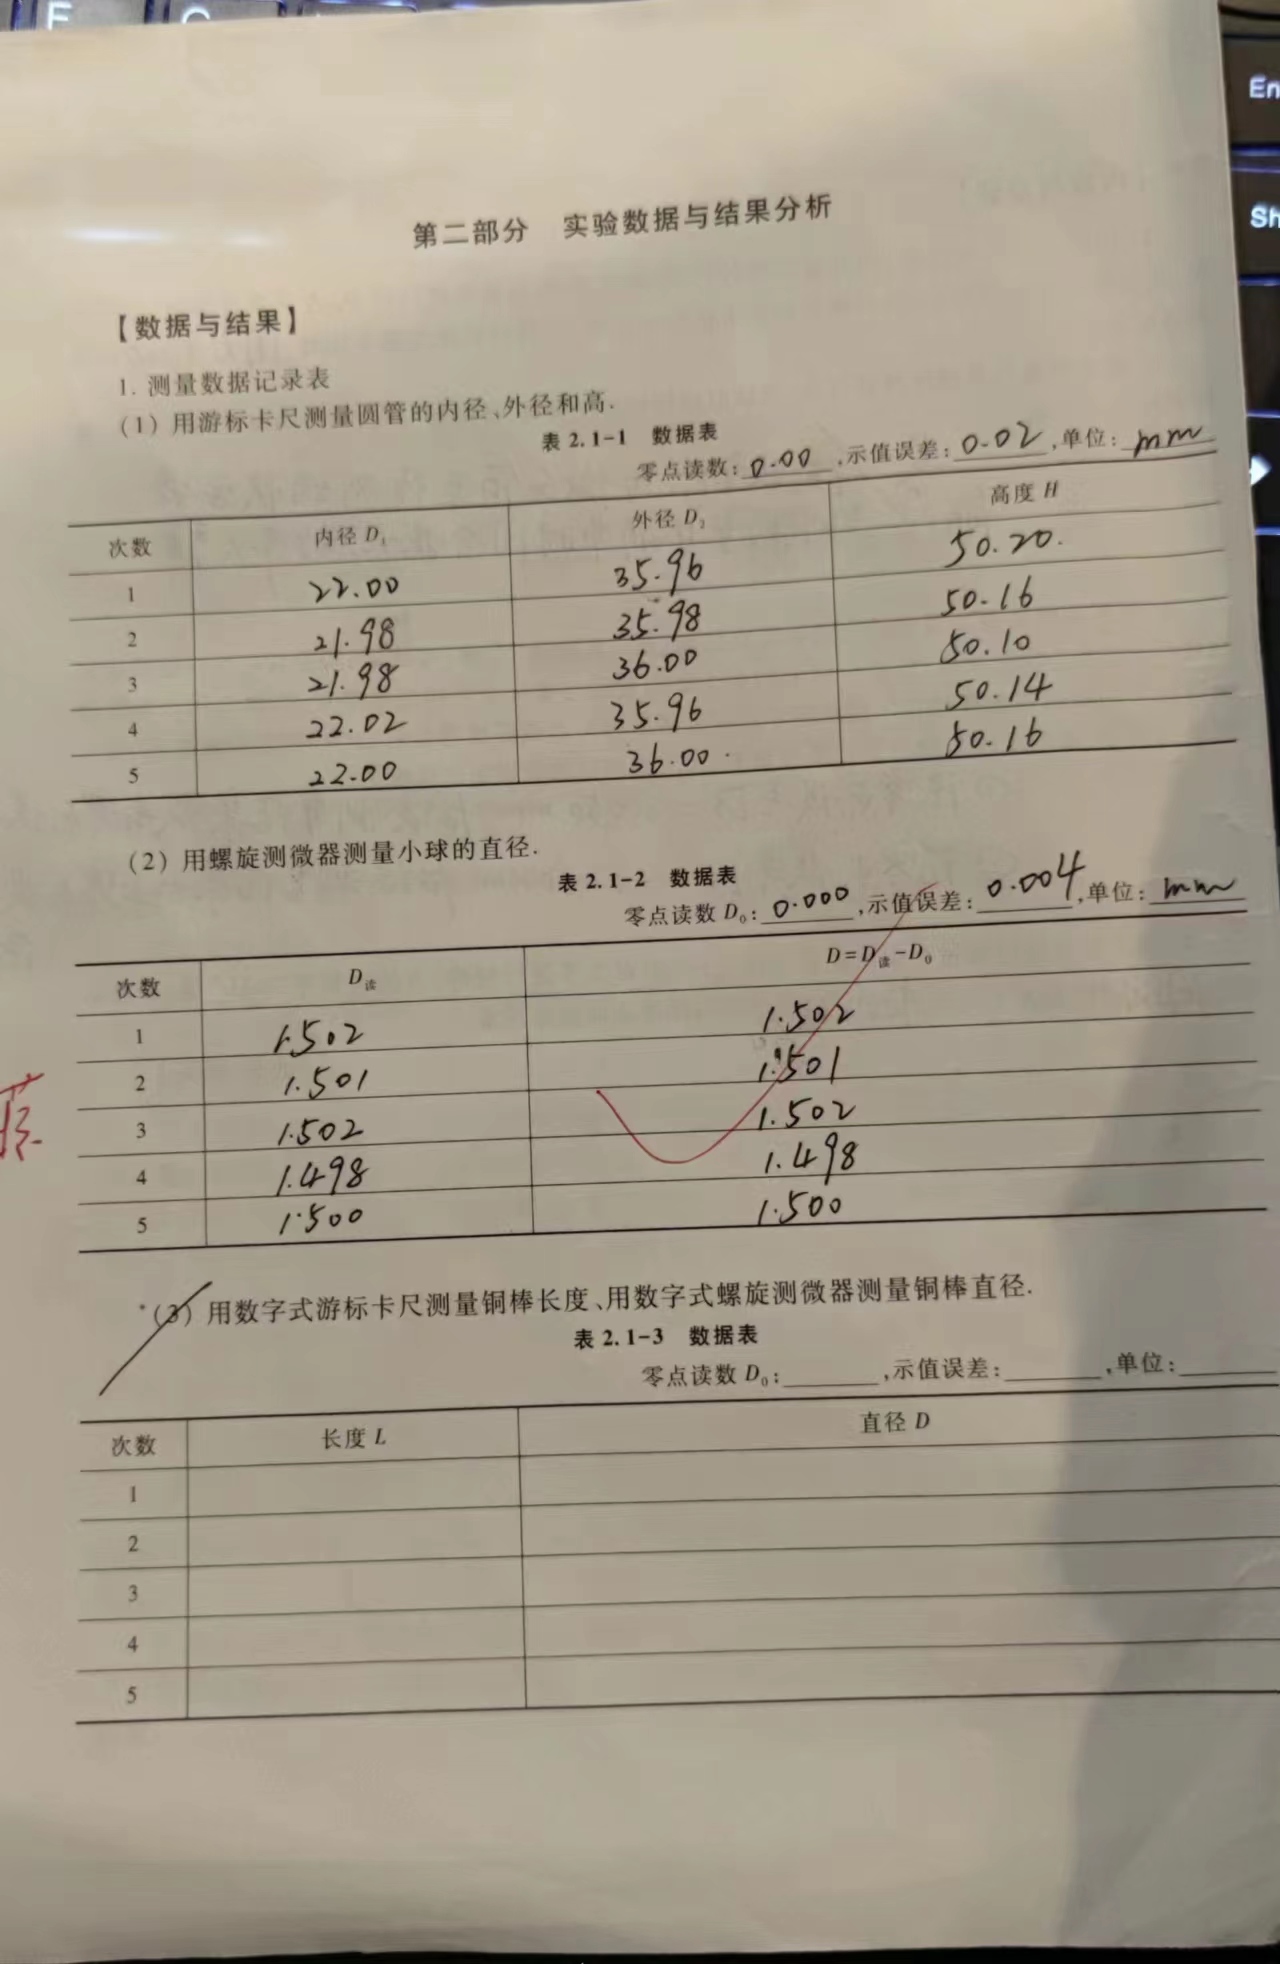 第二部分 实验数据与结果分析
【数据与结果】
1. 测量数据记录表
(1) 用游标卡尺测量圆管的内径、外径和高.
表 2.1-1 数据表
零点读数: 0.00 ,示值误差: 0.02 ,单位: mm
次数 内径 D₁ 外径 D₂ 高度 H
1 22.00 35.96 50.20.
2 21.98 35.98 50.16
3 21.98 36.00 50.10
4 22.02 35.96 50.14
5 22.00 36.00 50.16
(2) 用螺旋测微器测量小球的直径.
表 2.1-2 数据表
零点读数 D₀: 0.000 ,示值误差: 0.004 ,单位: mm
次数 D读 D=D读-D₀
1 1.502 1.502
2 1.501 1.501
3 1.502 1.502
4 1.498 1.498
5 1.500 1.500
*(3) 用数字式游标卡尺测量铜棒长度、用数字式螺旋测微器测量铜棒直径.
表 2.1-3 数据表
零点读数 D₀: ,示值误差: ,单位:
次数 长度 L 直径 D
1
2
3
4
5
En
Sh